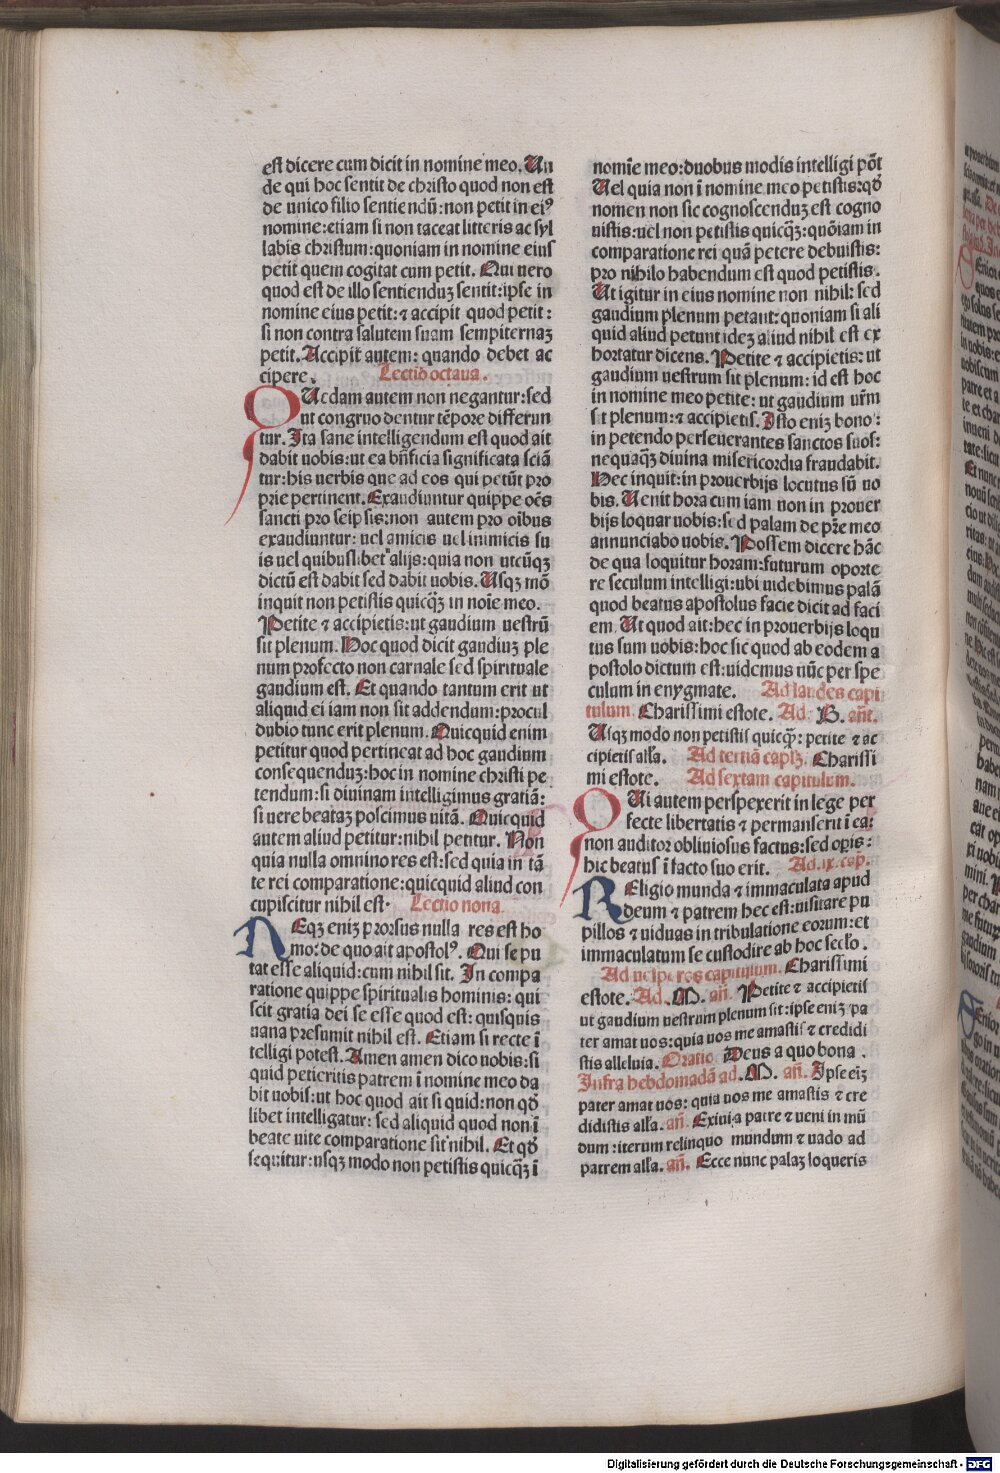 est dicere cum dicit in nomine meo. Un
de qui hoc sentit de christo quod non est
de unico filio sentiendū: non petit in eiꝰ
nomine: etiam si non taceat litteris ac syl
labis christum: quoniam in nomine eius
petit quem cogitat cum petit. Qui uero
quod est de illo sentienduʒ sentit: ipse in
nomine eius petit: ⁊ accipit quod petit:
si non contra salutem suam sempiternaʒ
petit. Accipit autem: quando debet ac
cipere. Lectio octaua.
QUedam autem non negantur: sed
ut congruo dentur tēpore differun
tur. Ita sane intelligendum est quod ait
dabit uobis: ut ea bn̄ficia significata sciā
tur: his uerbis que ad eos qui petūt pro
prie pertinent. Exaudiuntur quippe oēs
sancti pro seipsis: non autem pro oībus
exaudiuntur: uel amicis uel inimicis su
is uel quibuslibet alijs: quia non utcūqʒ
dictū est dabit sed dabit uobis. Usqʒ mō
inquit non petistis quicq̄ʒ in noīe meo.
Petite ⁊ accipietis: ut gaudium uestrū
sit plenum. Hoc quod dicit gaudiuʒ ple
num profecto non carnale sed spirituale
gaudium est. Et quando tantum erit ut
aliquid ei iam non sit addendum: procul
dubio tunc erit plenum. Quicquid enim
petitur quod pertineat ad hoc gaudium
consequenduʒ: hoc in nomine christi pe
tendum: si diuinam intelligimus gratiā:
si uere beataʒ poscimus uitā. Quicquid
autem aliud petitur: nihil petitur. Non
quia nulla omnino res est: sed quia in tā
te rei comparatione: quicquid aliud con
cupiscitur nihil est. Lectio nona.
NEqʒ eniʒ prorsus nulla res est ho
mo: de quo ait apostolꝰ. Qui se pu
tat esse aliquid: cum nihil sit. In compa
ratione quippe spiritualis hominis: qui
scit gratia dei se esse quod est: quisquis
uana presumit nihil est. Etiam si recte ī
telligi potest. Amen amen dico uobis: si
quid petieritis patrem ī nomine meo da
bit uobis: ut hoc quod ait si quid: non qđ
libet intelligatur: sed aliquid quod non ī
beate uite comparatione sit nihil. Et qđ
sequitur: usqʒ modo non petistis quicq̄ʒ ī
nomīe meo: duobus modis intelligi pōt
Uel quia non ī nomine meo petistis: qđ
nomen non sic cognoscenduʒ est cogno
uistis: uel non petistis quicq̄ʒ: quōiam in
comparatione rei quā petere debuistis:
pro nihilo habendum est quod petistis.
Ut igitur in eius nomine non nihil: sed
gaudium plenum petant: quoniam si ali
quid aliud petunt ideʒ aliud nihil est ex
hortatur dicens. Petite ⁊ accipietis: ut
gaudium uestrum sit plenum: id est hoc
in nomine meo petite: ut gaudium ur̄m
sit plenum: ⁊ accipietis. Isto eniʒ bono:
in petendo perseuerantes sanctos suos:
nequaq̄ʒ diuina misericordia fraudabit.
Hec inquit: in prouerbijs locutus sū uo
bis. Uenit hora cum iam non in prouer
bijs loquar uobis: sed palam de pr̄e meo
annunciabo uobis. Possem dicere hāc
de qua loquitur horam: futurum oporte
re seculum intelligi: ubi uidebimus palā
quod beatus apostolus facie dicit ad faci
em. Ut quod ait: hec in prouerbijs loqu
tus sum uobis: hoc sic quod ab eodem a
postolo dictum est: uidemus nūc per spe
culum in enygmate. Ad laudes capi
tulum. Charissimi estote. Ad. B. an̄t.
Usqʒ modo non petistis quicq̄ʒ: petite ⁊ ac
cipietis all'a. Ad tertiā capl̄ʒ. Charissi
mi estote. Ad sextam capitulum.
QUi autem perspexerit in lege per
fecte libertatis ⁊ permanserit ī ea:
non auditor obliuiosus factus: sed oꝑis:
hic beatus ī facto suo erit. Ad. ix. cap̄.
REligio munda ⁊ immaculata apud
deum ⁊ patrem hec est: uisitare pu
pillos ⁊ uiduas in tribulatione eorum: et
immaculatum se custodire ab hoc secl'o.
Ad uesperos capitulum. Charissimi
estote. Ad. M. an̄. Petite ⁊ accipietis
ut gaudium uestrum plenum sit: ipse eniʒ pa
ter amat uos: quia uos me amastis ⁊ credidi
stis alleluia. Oratio Deus a quo bona.
Infra hebdomadā ad. M. an̄. Ipse eiʒ
pater amat uos: quia uos me amastis ⁊ cre
didistis all'a. an̄. Exiui a patre ⁊ ueni in mū
dum: iterum relinquo mundum ⁊ uado ad
patrem all'a. an̄. Ecce nunc palaʒ loqueris
Digitalisierung gefördert durch die Deutsche Forschungsgemeinschaft - DFG